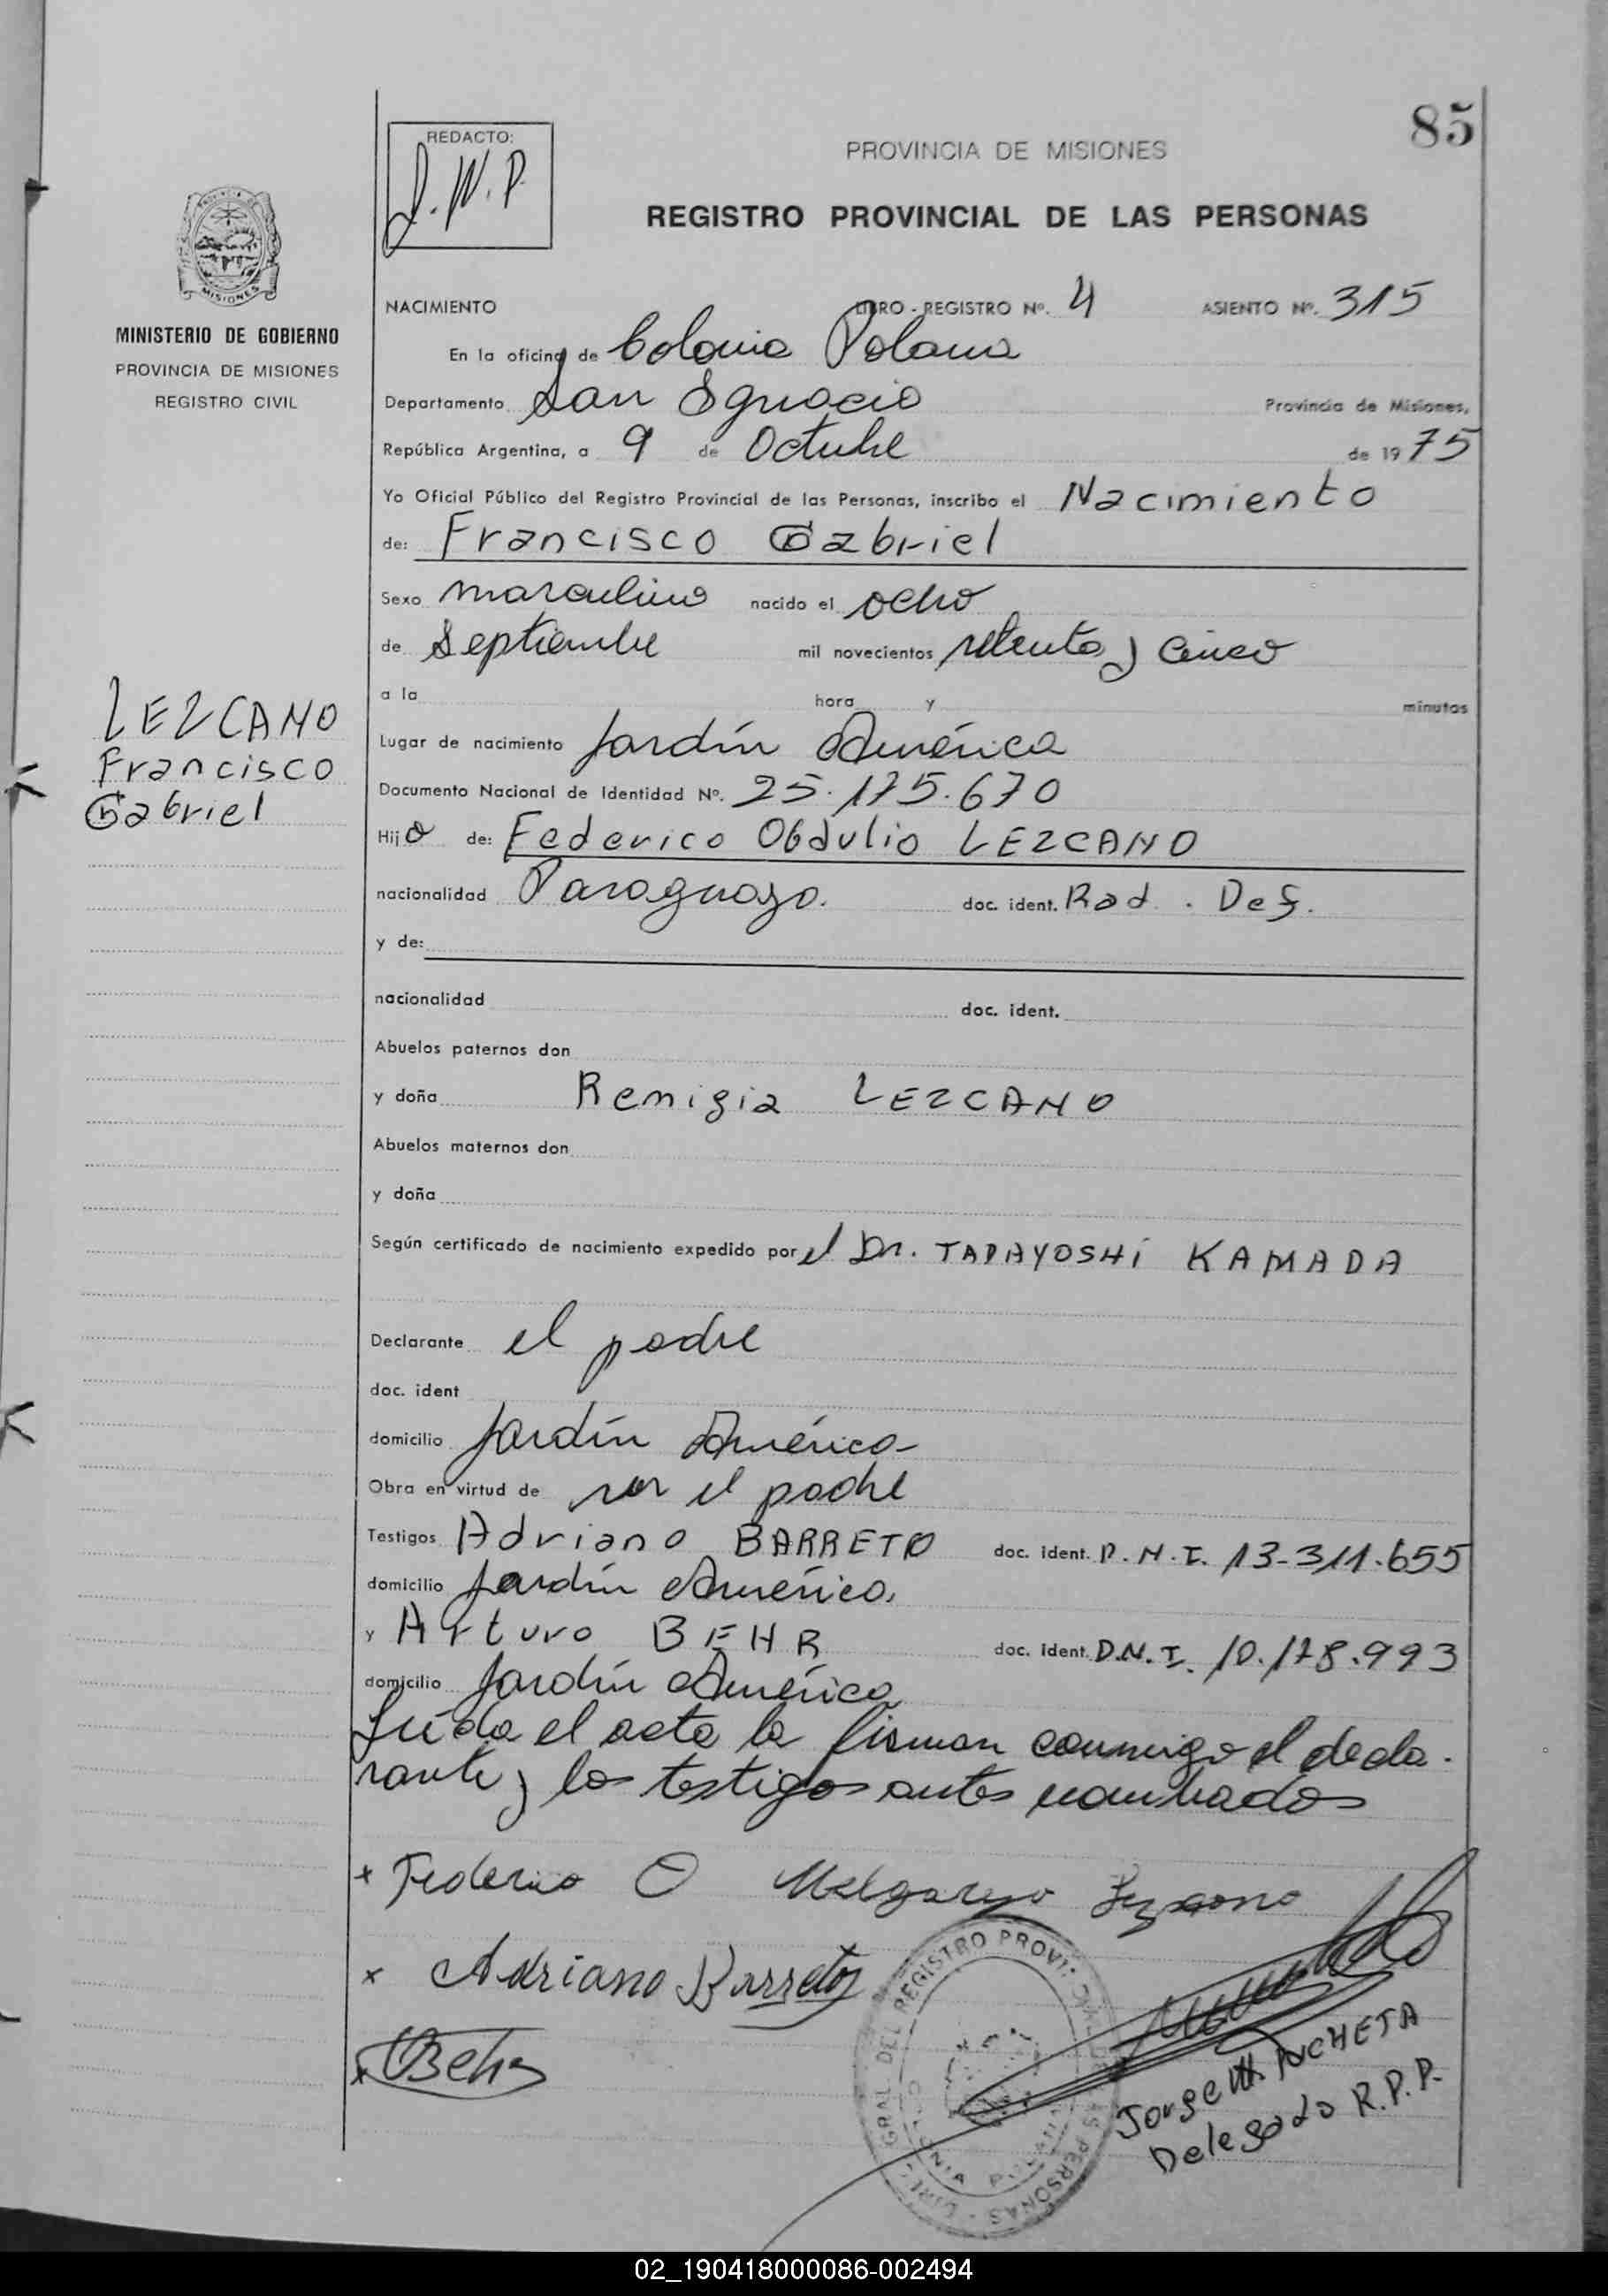 85
REDACTO:
J.W.P.
PROVINCIA DE MISIONES
REGISTRO PROVINCIAL DE LAS PERSONAS
MISIONES
MINISTERIO DE GOBIERNO
PROVINCIA DE MISIONES
REGISTRO CIVIL
NACIMIENTO LIBRO - REGISTRO Nº. 4 ASIENTO Nº. 315
En la oficina de Colonia Polana
Departamento San Ignacio Provincia de Misiones,
República Argentina, a 9 de Octubre de 1975
Yo Oficial Público del Registro Provincial de las Personas, inscribo el Nacimiento
de: Francisco Gabriel
Sexo masculino nacido el ocho
de Septiembre mil novecientos setenta y cinco
a la hora y minutos
LEZCANO
Francisco
Gabriel
Lugar de nacimiento Jardín América
Documento Nacional de Identidad Nº. 25.175.670
Hijo de: Federico Obdulio LEZCANO
nacionalidad Paraguayo. doc. ident. Rad. Def.
y de:
nacionalidad doc. ident.
Abuelos paternos don
y doña Remigia LEZCANO
Abuelos maternos don
y doña
Según certificado de nacimiento expedido por el Dr. TADAYOSHI KAMADA
Declarante el padre
doc. ident
domicilio Jardín América
Obra en virtud de ser el padre
Testigos Adriano BARRETO doc. ident. D.N.I. 13-311.655
domicilio Jardín América,
y Arturo BEHR doc. ident. D.N.I. 10.178.993
domicilio Jardín América
Leída el acta la firman conmigo el decla-
rante y los testigos antes nombrados
x Federico O Melgarejo Lezcano
x Adriano Barreto
x Behr
DIREC. GRAL. DEL REGISTRO PROVINCIAL DE LAS PERSONAS
COLONIA POLANA
Jorge W. ANCHETA
Delegado R.P.P.
02_190418000086-002494